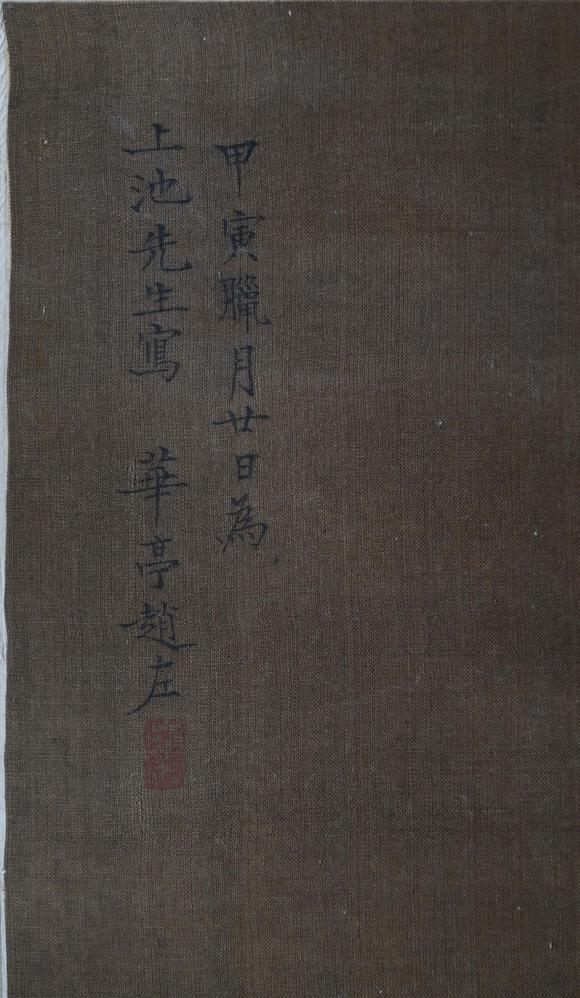 甲寅臘月廿日為
上池先生寫 華亭趙左